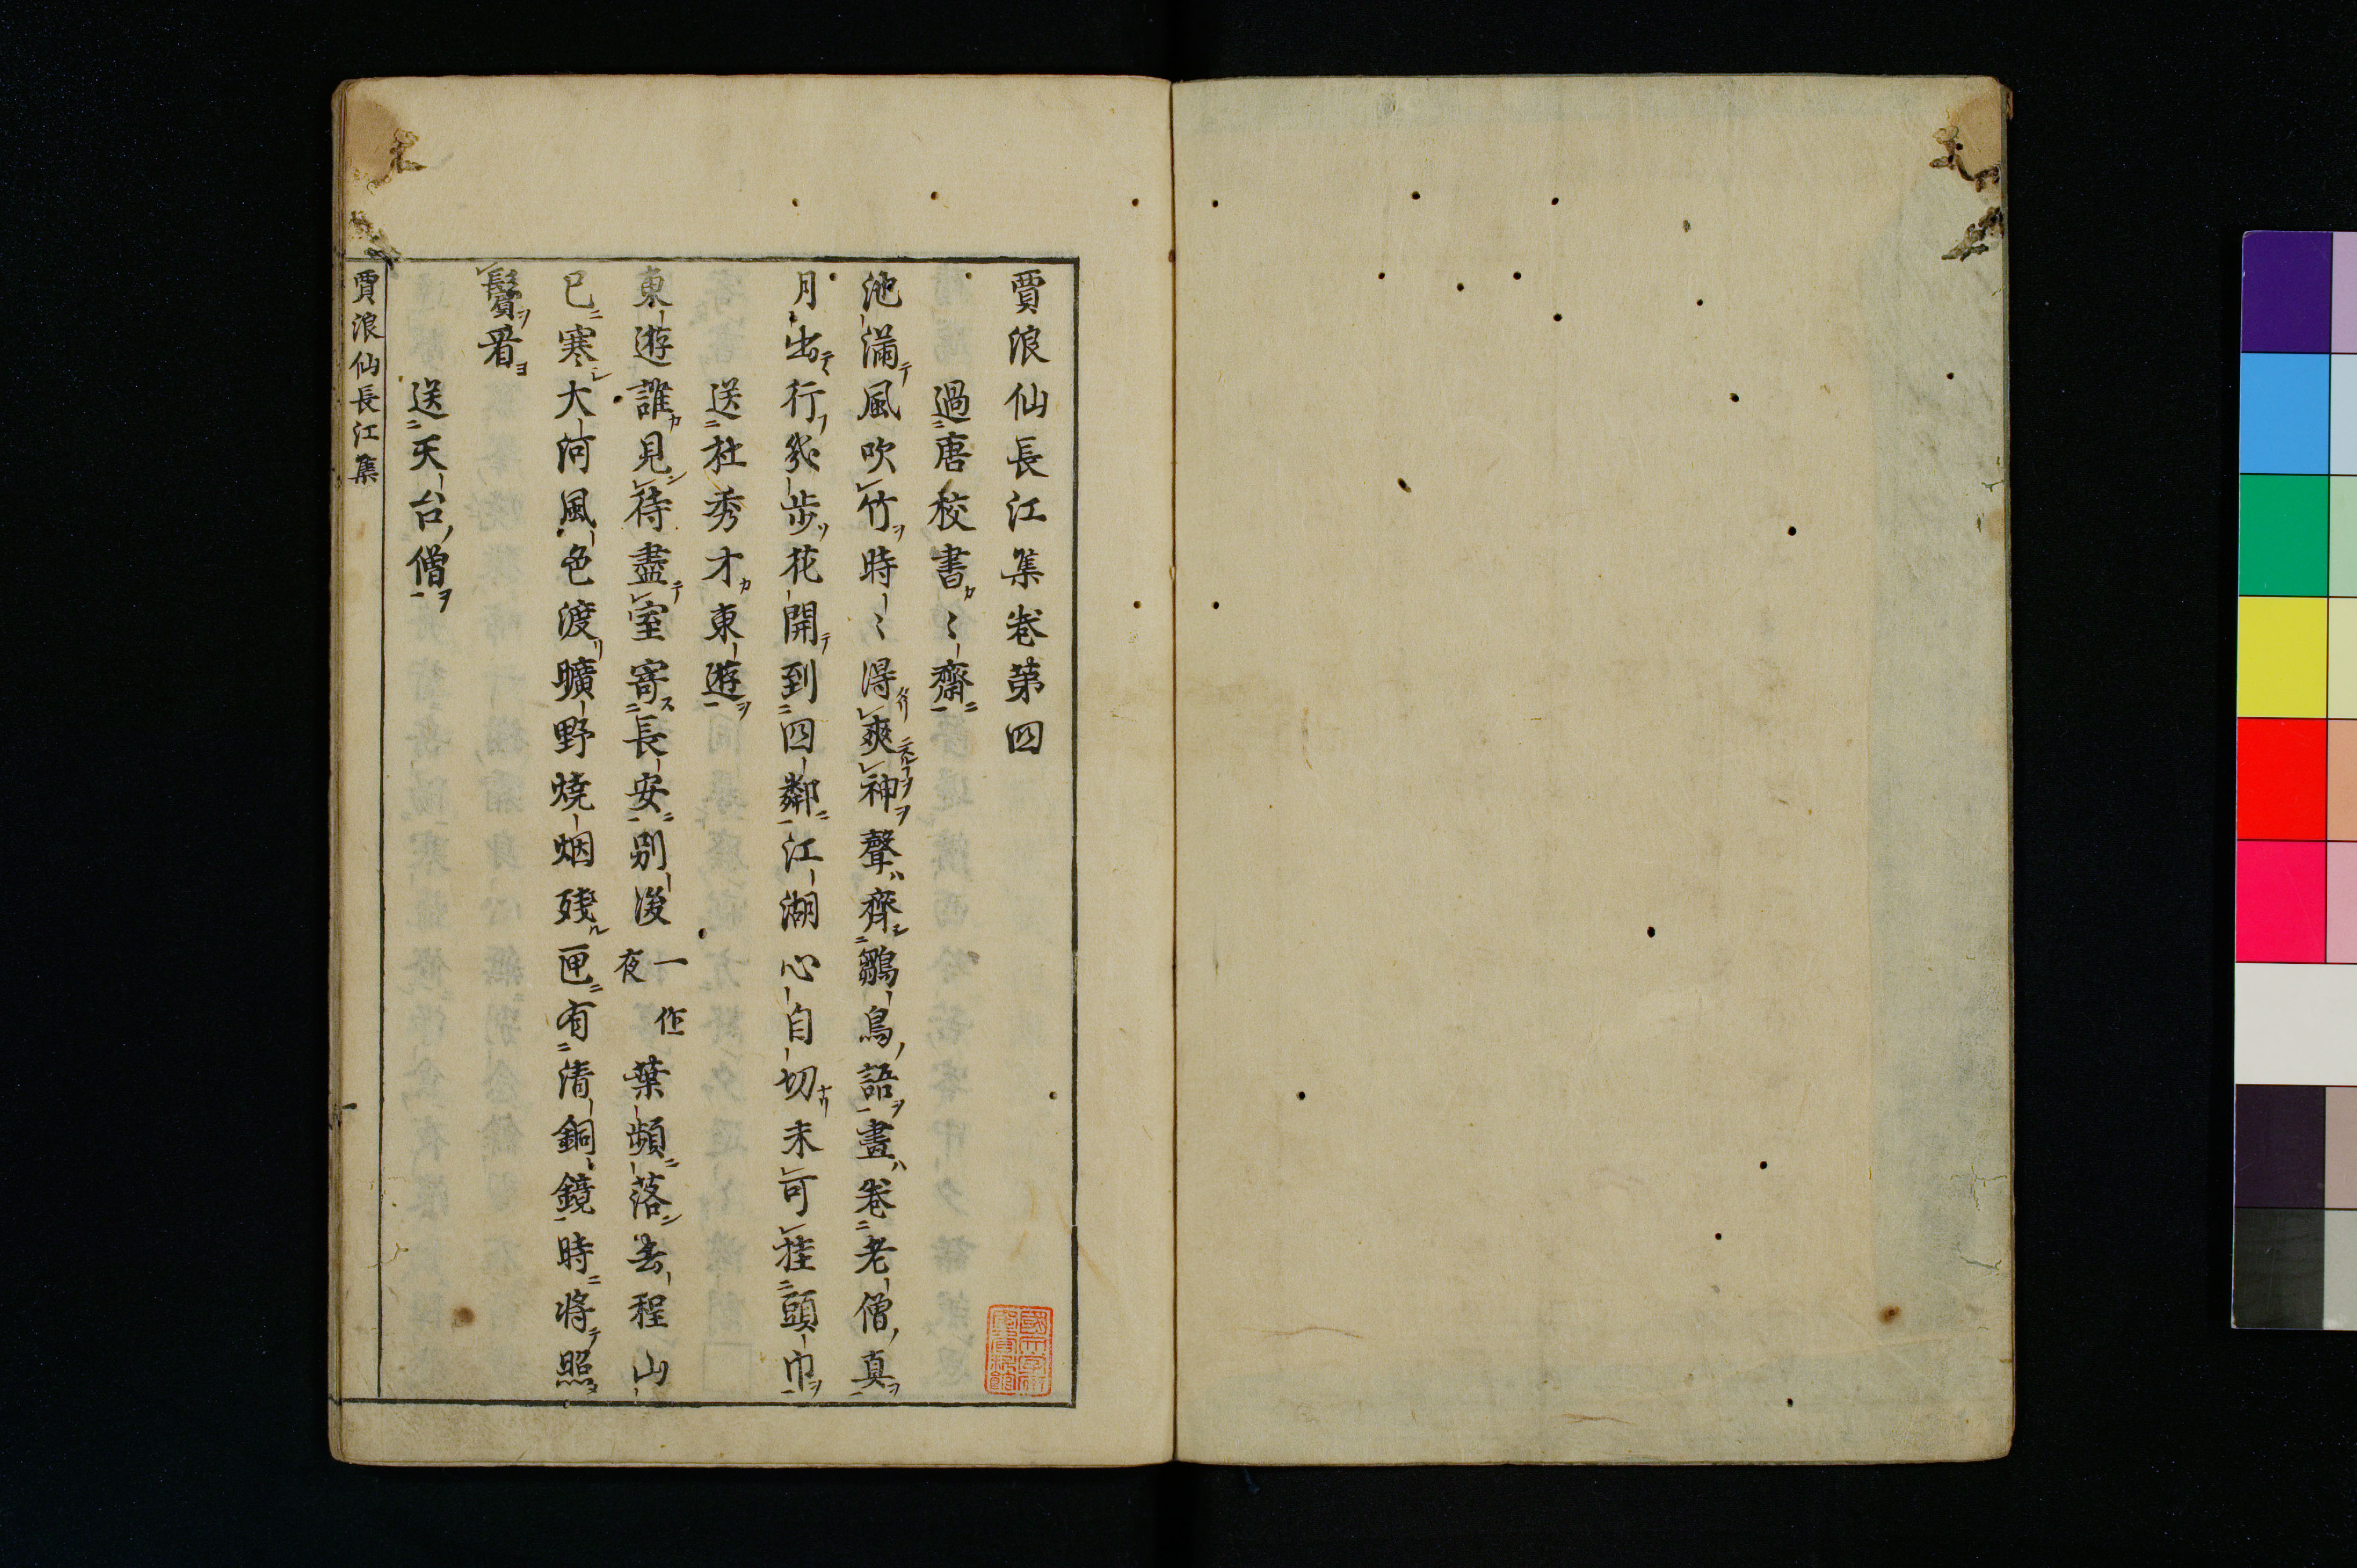 賈浪仙長江集卷第四
過唐校書〻齋
池滿風吹竹時〻得爽神聲齊鶵鳥語畫卷老僧真
月出行幾步花開到四鄰江湖心自切未可挂頭巾
送杜秀才東遊
東遊誰見待盡室寄長安別後一作夜葉頻落去程山
已寒大河風色渡曠野燒烟殘匣有清銅鏡時將照
鬢看
送天台僧
賈浪仙長江集